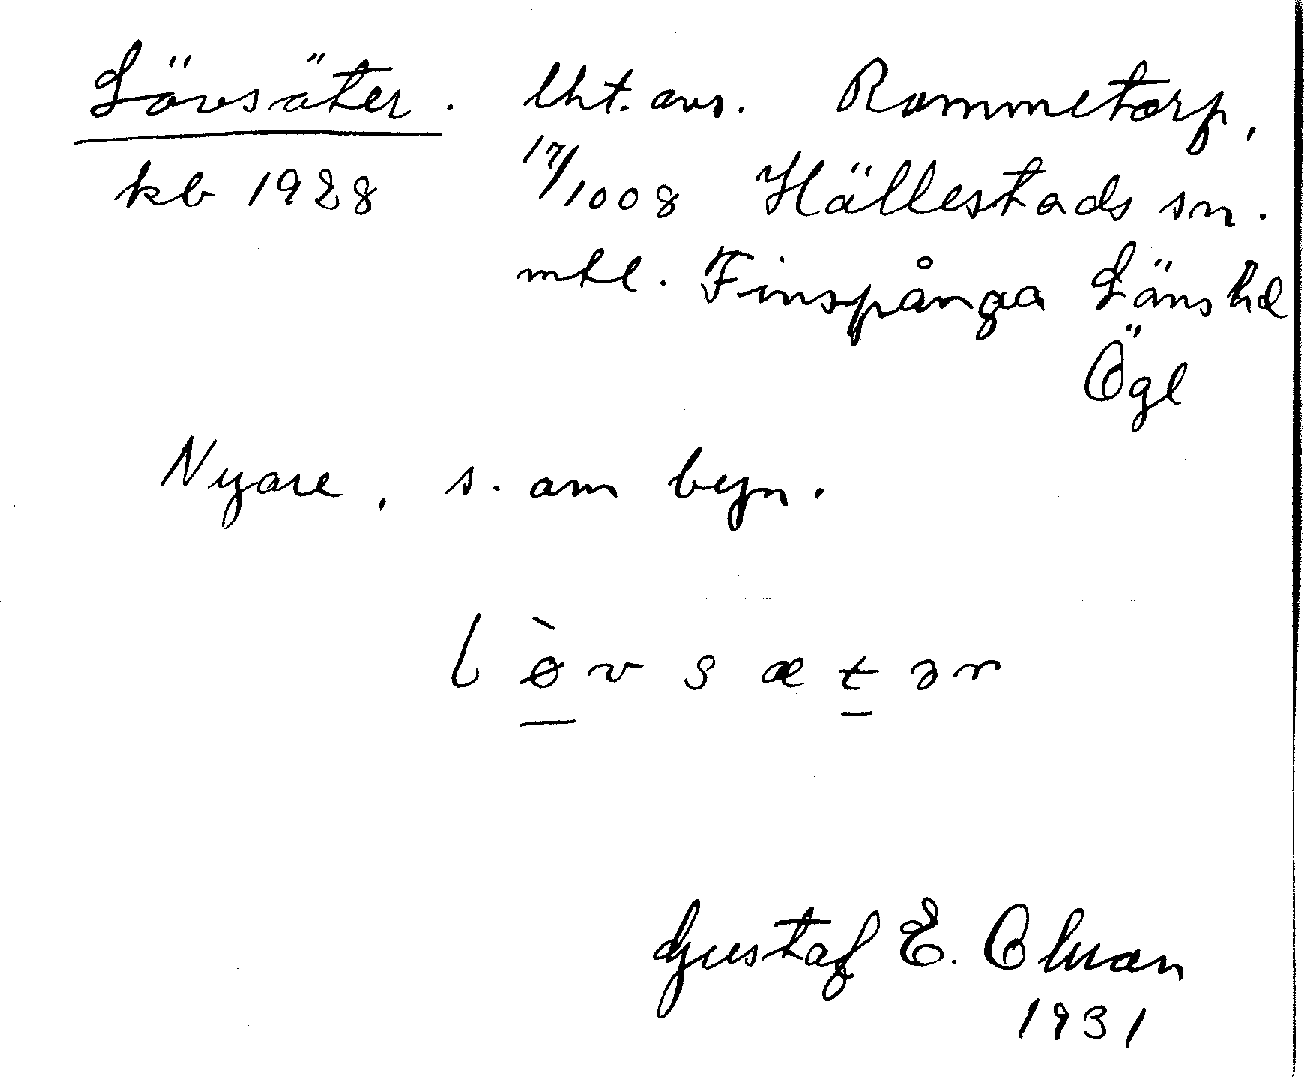 Lövsäter. lht. avs. Rommetorp,
kb 1928 17/1008 Hällestads sn.
mtl. Finspånga Läns hd
Ögl
Nyare, s. om byn.
l ø̀ v s æ t ə r
Gustaf E. Olson
1931